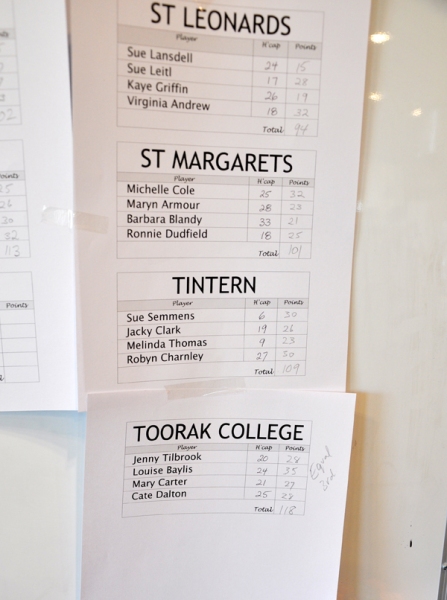 ST LEONARDS
Player H'cap Points
Sue Lansdell 24 15
Sue Leitl 17 28
Kaye Griffin 26 19
Virginia Andrew 18 32
Total 94
ST MARGARETS
Player H'cap Points
Michelle Cole 25 32
Maryn Armour 28 23
Barbara Blandy 33 21
Ronnie Dudfield 18 25
Total 101
TINTERN
Player H'cap Points
Sue Semmens 6 30
Jacky Clark 19 26
Melinda Thomas 9 23
Robyn Charnley 27 30
Total 109
TOORAK COLLEGE
Player H'cap Points
Jenny Tilbrook 20 28
Louise Baylis 24 35
Mary Carter 21 27
Cate Dalton 25 28
Total 118
Equal
3rd
32
113
Points